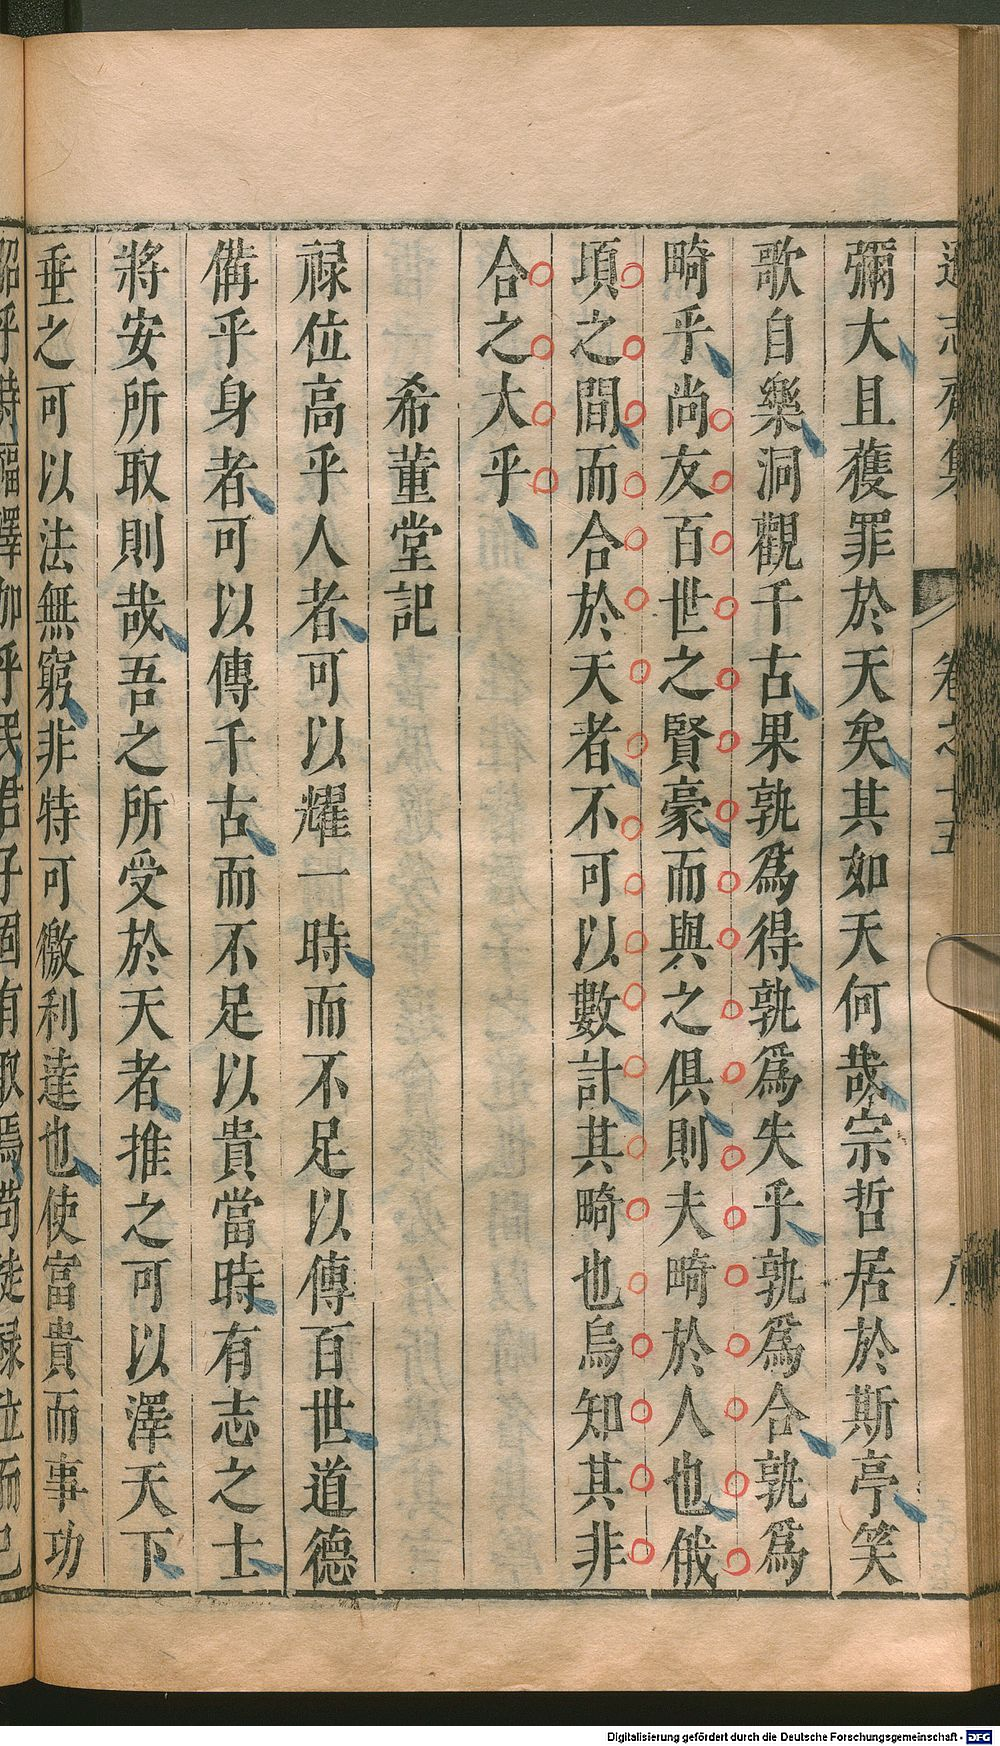 遜志齋集 卷之十五
彌大且獲罪於天矣其如天何哉宗哲居於斯亭笑
歌自樂洞觀千古果孰爲得孰爲失乎孰爲合孰爲
畸乎尚友百世之賢豪而與之俱則夫畸於人也俄
項之間而合於天者不可以數計其畸也烏知其非
合之大乎
希董堂記
祿位高乎人者可以耀一時而不足以傳百世道德
備乎身者可以傳千古而不足以貴當時有志之士
將安所取則哉吾之所受於天者推之可以澤天下
垂之可以法無窮非特可徼利達也使富貴而事功
昭乎時福澤加乎民君子固有取焉苟徒祿位而已
Digitalisierung gefördert durch die Deutsche Forschungsgemeinschaft - DFG